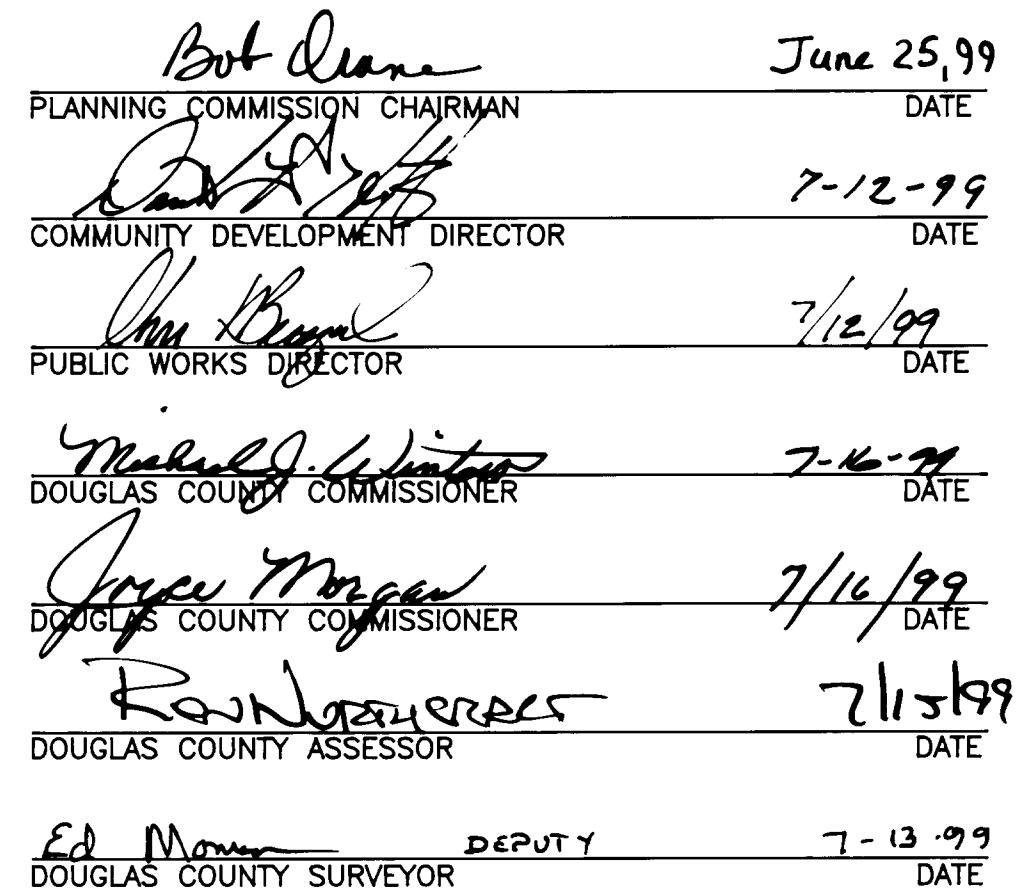 Bob June 25, 99
PLANNING COMMISSION CHAIRMAN DATE
7-12-99
COMMUNITY DEVELOPMENT DIRECTOR DATE
7/12/99
PUBLIC WORKS DIRECTOR DATE
Michael J. Winters 7-16-99
DOUGLAS COUNTY COMMISSIONER DATE
Joyce Morgan 7/16/99
DOUGLAS COUNTY COMMISSIONER DATE
Ron Northcraft 7/15/99
DOUGLAS COUNTY ASSESSOR DATE
Ed DEPUTY 7-13-99
DOUGLAS COUNTY SURVEYOR DATE